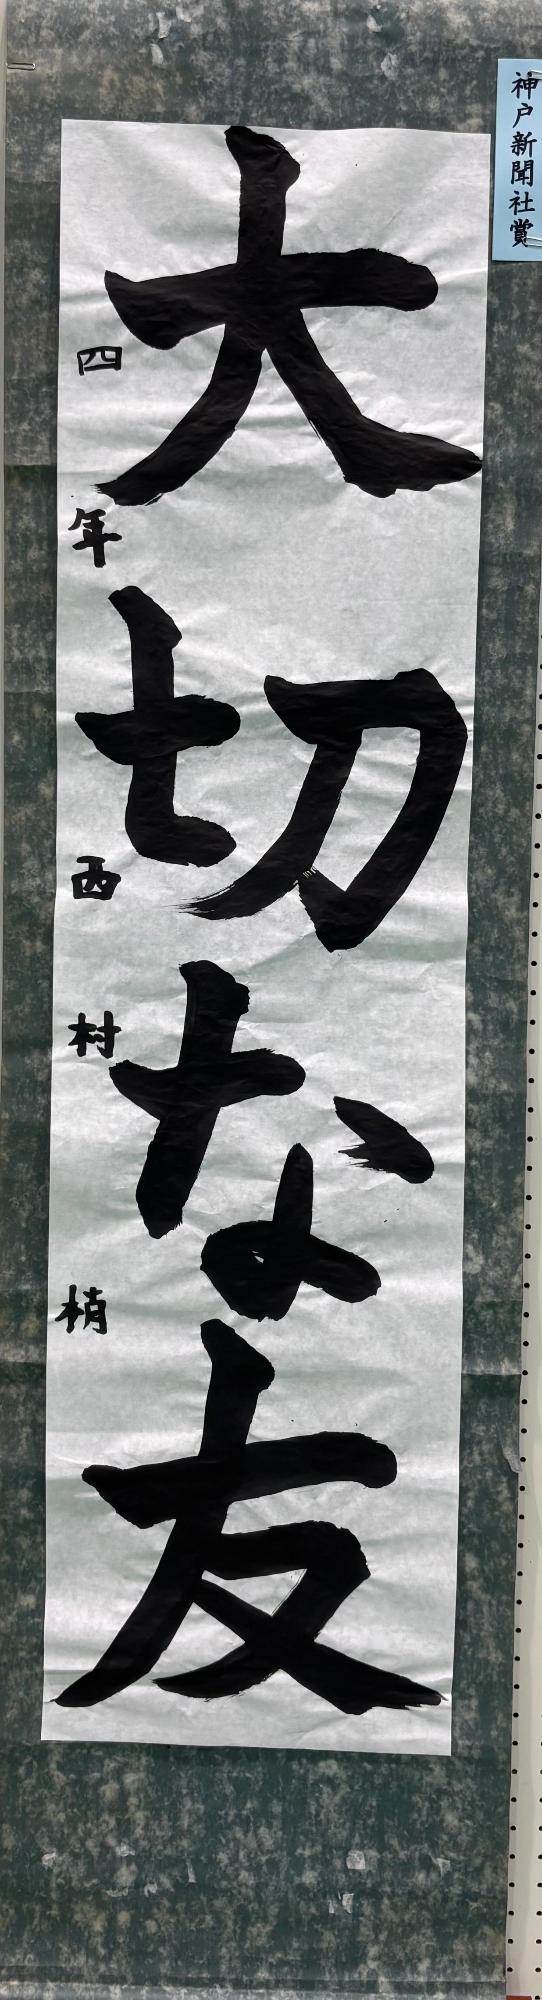 神戸新聞社賞
大切な友
四年 西村 梢